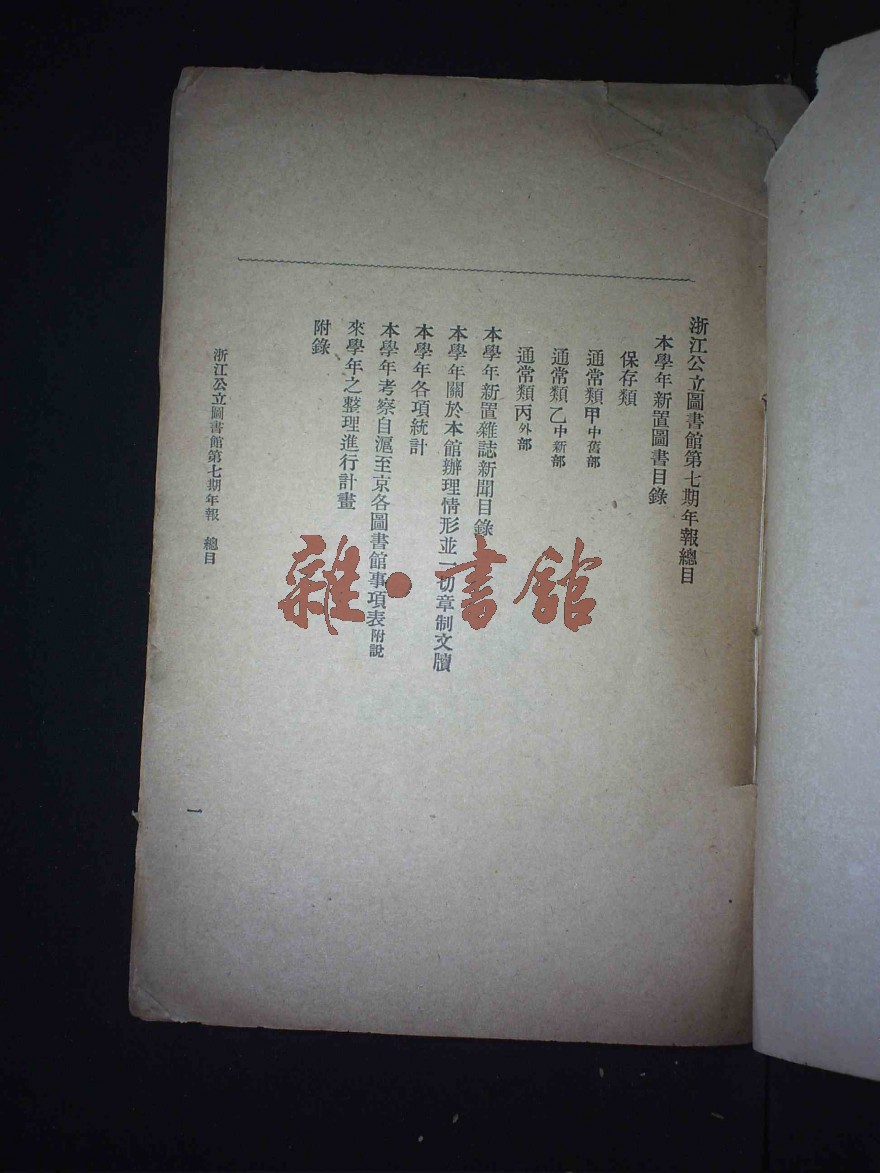 浙江公立圖書館第七期年報總目
本學年新置圖書目錄
保存類
通常類甲中舊部
通常類乙中新部
通常類丙外部
本學年新置雜誌新聞目錄
本學年關於本館辦理情形並一切章制文牘
本學年各項統計
本學年考察自滬至京各圖書館事項表附說
來學年之整理進行計畫
附錄
浙江公立圖書館第七期年報 總目
一
雜·書館